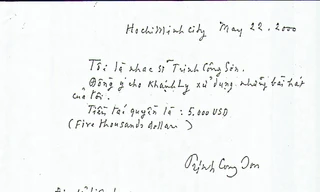 HochiMinh city May 22. 2000
Tôi là nhạc sĩ Trịnh Công Sơn.
Đồng ý cho Khánh Ly sử dụng những bài hát
của tôi.
Tiền tác quyền là : 5.000 USD
(Five thousands dollars)
Trịnh Cong Son